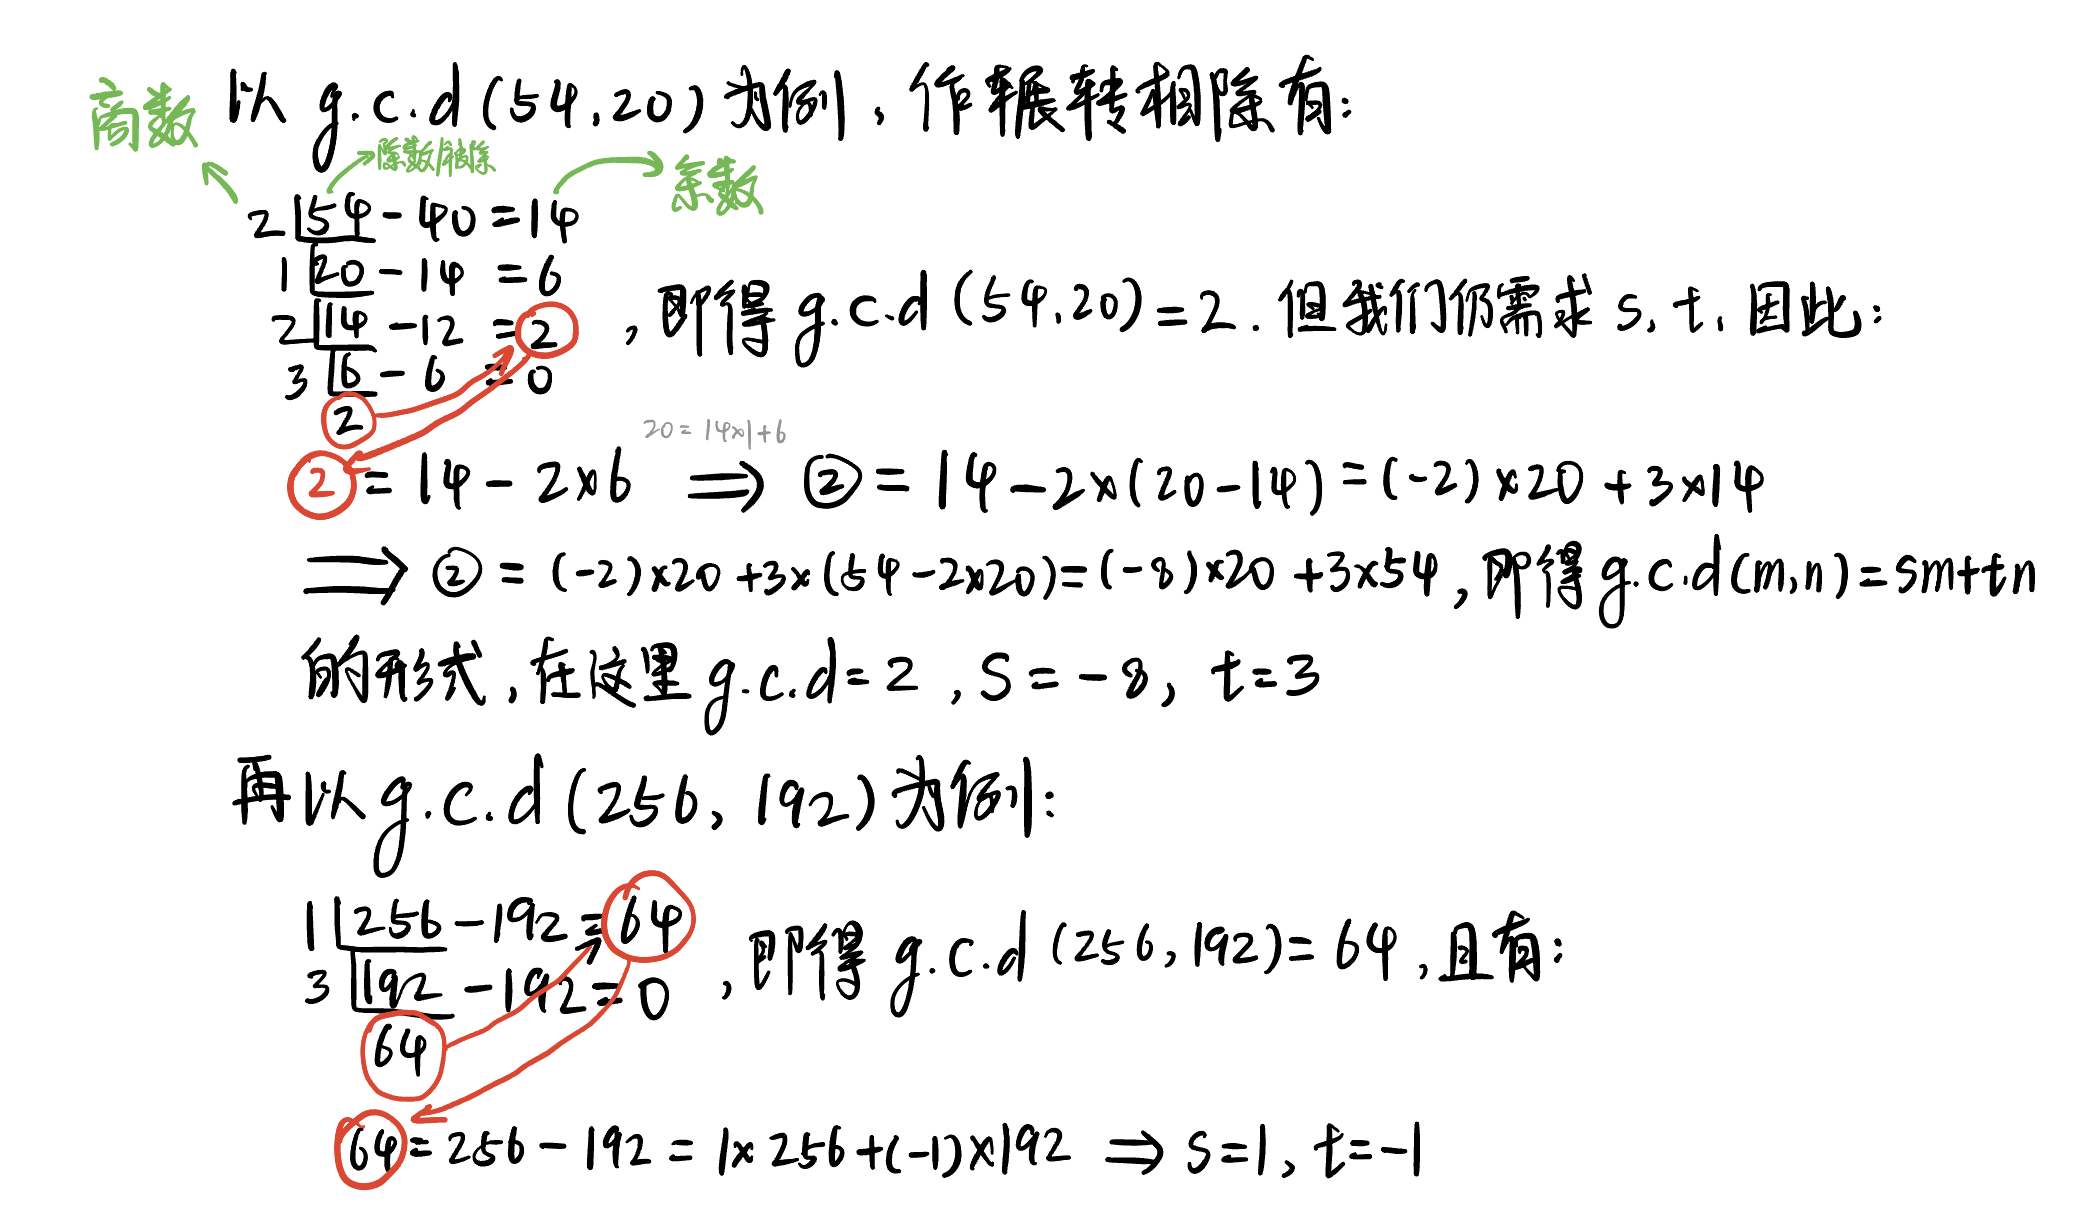 以 g.c.d (54,20) 为例，作辗转相除有：
商数
除数/被除
余数
2 54 - 40 = 14
1 20 - 14 = 6
2 14 - 12 = 2
3 6 - 6 = 0
2
，即得 g.c.d (54,20) = 2. 但我们仍需求 s, t, 因此：
20 = 14×1+6
2 = 14 - 2×6 ⟹ ② = 14 - 2×(20-14) = (-2)×20 + 3×14
⟹ ② = (-2)×20 + 3×(54-2×20) = (-8)×20 + 3×54, 即得 g.c.d(m,n) = sm+tn
的形式，在这里 g.c.d = 2, S = -8, t = 3
再以 g.c.d (256, 192) 为例：
1 256 - 192 = 64
3 192 - 192 = 0
64
，即得 g.c.d (256,192) = 64, 且有：
64 = 256 - 192 = 1×256+(-1)×192 ⟹ s=1, t=-1